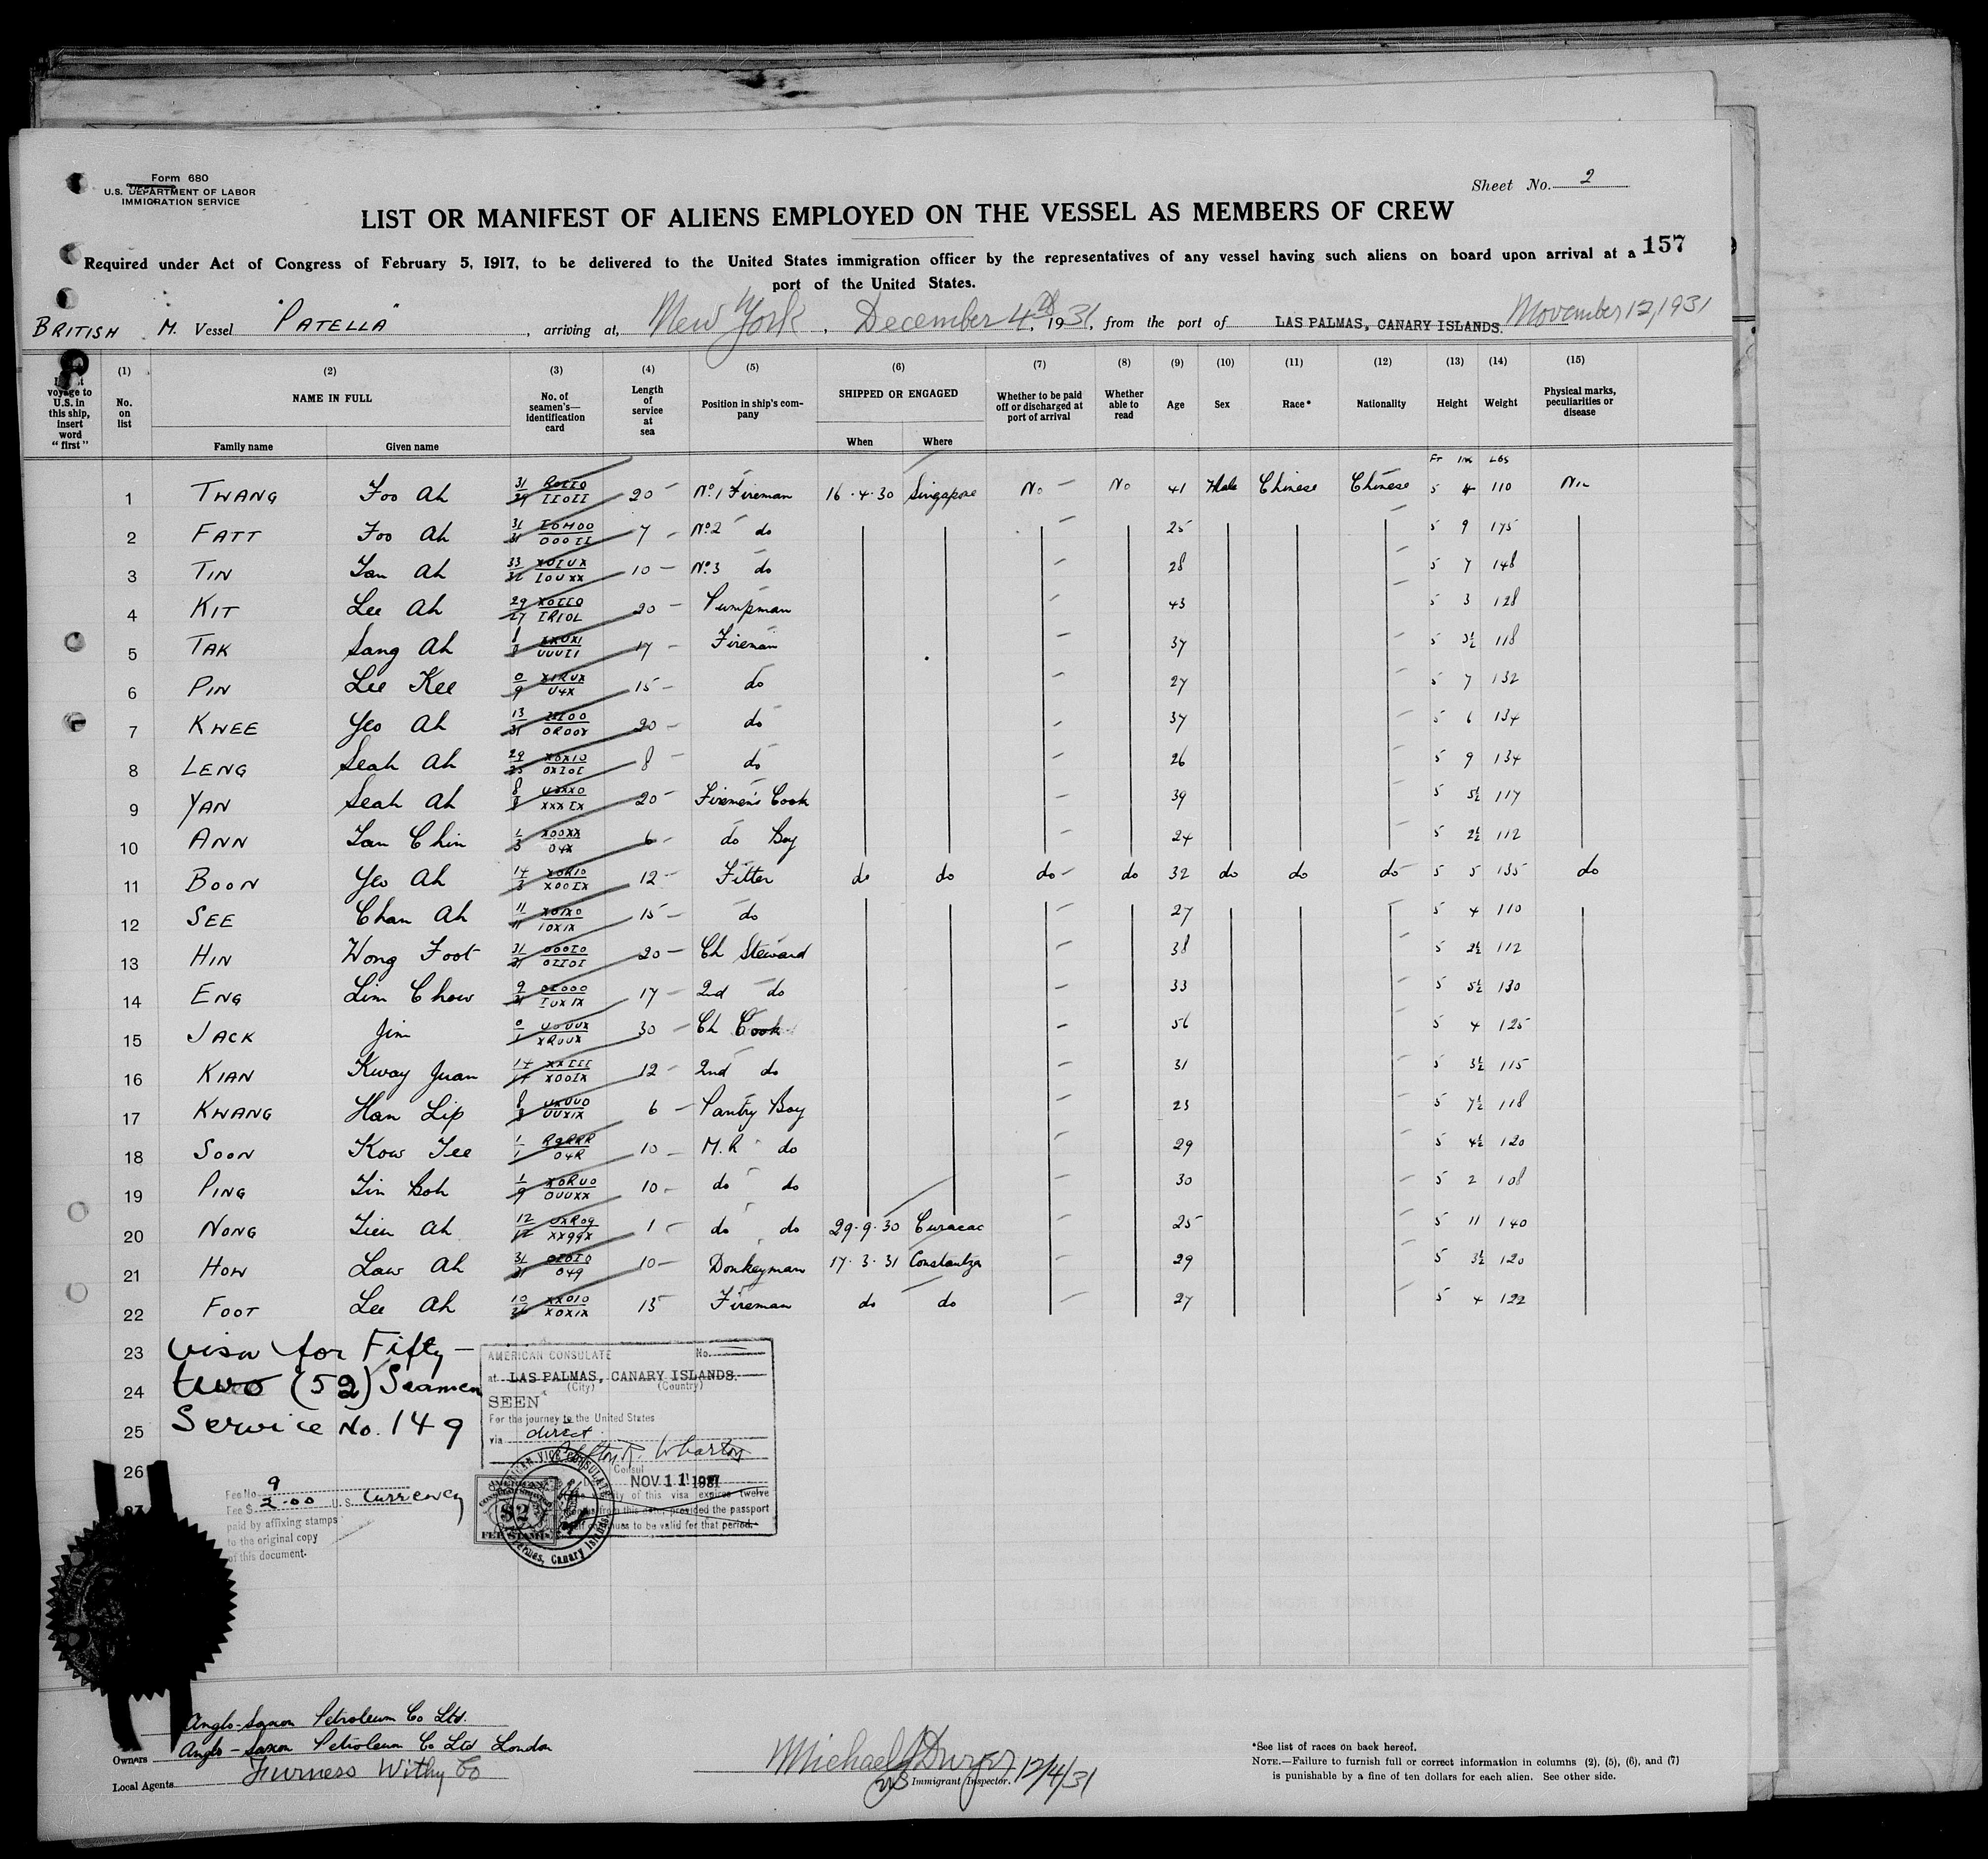 Form 680
U.S. DEPARTMENT OF LABOR
IMMIGRATION SERVICE
Sheet No. 2
LIST OR MANIFEST OF ALIENS EMPLOYED ON THE VESSEL AS MEMBERS OF CREW
157
Required under Act of Congress of February 5, 1917, to be delivered to the United States immigration officer by the representatives of any vessel having such aliens on board upon arrival at a
port of the United States.
BRITISH M. Vessel "PATELLA", arriving at, New York, December 4th, 1931, from the port of LAS PALMAS, CANARY ISLANDS. November 12, 1931
voyage to U.S. in this ship, insert word "first"
(1) No. on list
(2) NAME IN FULL Family name Given name
(3) No. of seamen's identification card
(4) Length of service at sea
(5) Position in ship's company
(6) SHIPPED OR ENGAGED When Where
(7) Whether to be paid off or discharged at port of arrival
(8) Whether able to read
(9) Age
(10) Sex
(11) Race*
(12) Nationality
(13) Height
(14) Weight
(15) Physical marks, peculiarities or disease
Ft Ins Lbs
1 TWANG Foo Ah 20 No. 1 Fireman 16.4.30 Singapore No No 41 Male Chinese Chinese 5 4 110 Nil
2 FATT Foo Ah 7 No 2 do 25 5 9 175
3 TIN Tan Ah 10 No 3 do 28 5 7 148
4 KIT Lee Ah 20 Pumpman 43 5 3 128
5 TAK Sang Ah 17 Fireman 37 5 3½ 118
6 PIN Lee Kee 15 do 27 5 7 132
7 KWEE Yeo Ah 20 do 37 5 6 134
8 LENG Seah Ah 8 do 26 5 9 134
9 YAN Seah Ah 20 Firemen's Cook 39 5 5½ 117
10 ANN Tan Chin 6 do Boy 24 5 2½ 112
11 BOON Yeo Ah 12 Fitter do do do do 32 do do do 5 5 135 do
12 SEE Chan Ah 15 do 27 5 4 110
13 HIN Wong Foot 20 Ch Steward 38 5 2½ 112
14 ENG Lim Chow 17 2nd do 33 5 5½ 130
15 JACK Jim 30 Ch Cook 56 5 4 125
16 KIAN Kway Juan 12 2nd do 31 5 3½ 115
17 KWANG Han Lip 6 Pantry Boy 23 5 7½ 118
18 SOON Kow Tee 10 M.R do 29 5 4½ 120
19 PING Tin Boh 10 do do 30 5 2 108
20 NONG Tien Ah 1 do do 29.9.30 Curacao 25 5 11 140
21 HOW Law Ah 10 Donkeyman 17.3.31 Constantza 29 5 3½ 120
22 FOOT Lee Ah 15 Fireman do do 27 5 4 122
23 Visa for Fifty-
24 two (52) Seamen
25 Service No. 149
26
AMERICAN CONSULATE No.
at LAS PALMAS, CANARY ISLANDS.
(City) (Country)
SEEN
For the journey to the United States
via direct
Clifton R. Wharton
Consul
NOV 11 1931
of this visa expires twelve
from this date, provided the passport
to be valid for that period.
$2
FEE STAMP
Fee No. 9
Fee $ 2.00 U.S. Currency
paid by affixing stamps
to the original copy
of this document.
Anglo-Saxon Petroleum Co Ltd.
Owners Anglo-Saxon Petroleum Co Ltd London
Local Agents Furness Withy Co
Michael J Dwyer 12/4/31
Immigrant Inspector.
*See list of races on back hereof.
NOTE.—Failure to furnish full or correct information in columns (2), (5), (6), and (7)
is punishable by a fine of ten dollars for each alien. See other side.